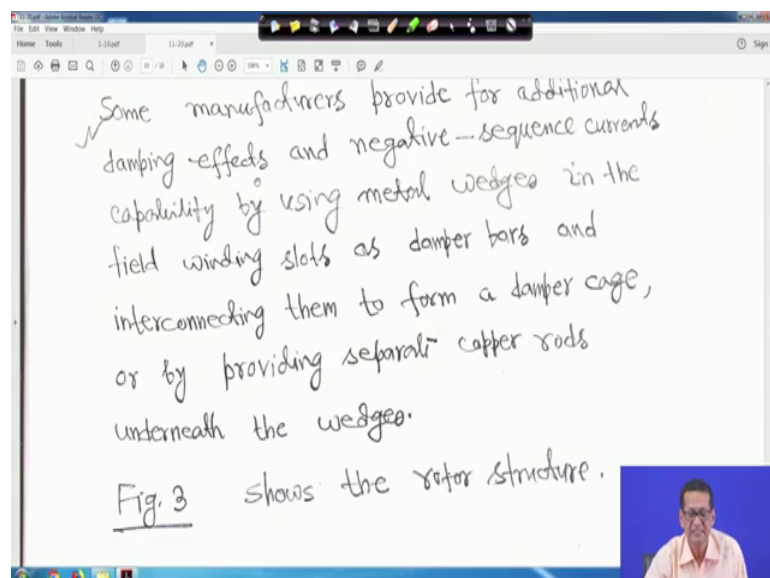 11-20.pdf - Adobe Acrobat Reader DC
File Edit View Window Help
Home Tools 1-10.pdf 11-20.pdf × Sign
Some manufacturers provide for additional
damping effects and negative-sequence currents
capability by using metal wedges in the
field winding slots as damper bars and
interconnecting them to form a damper cage,
or by providing separate copper rods
underneath the wedges.
Fig. 3 shows the rotor structure.